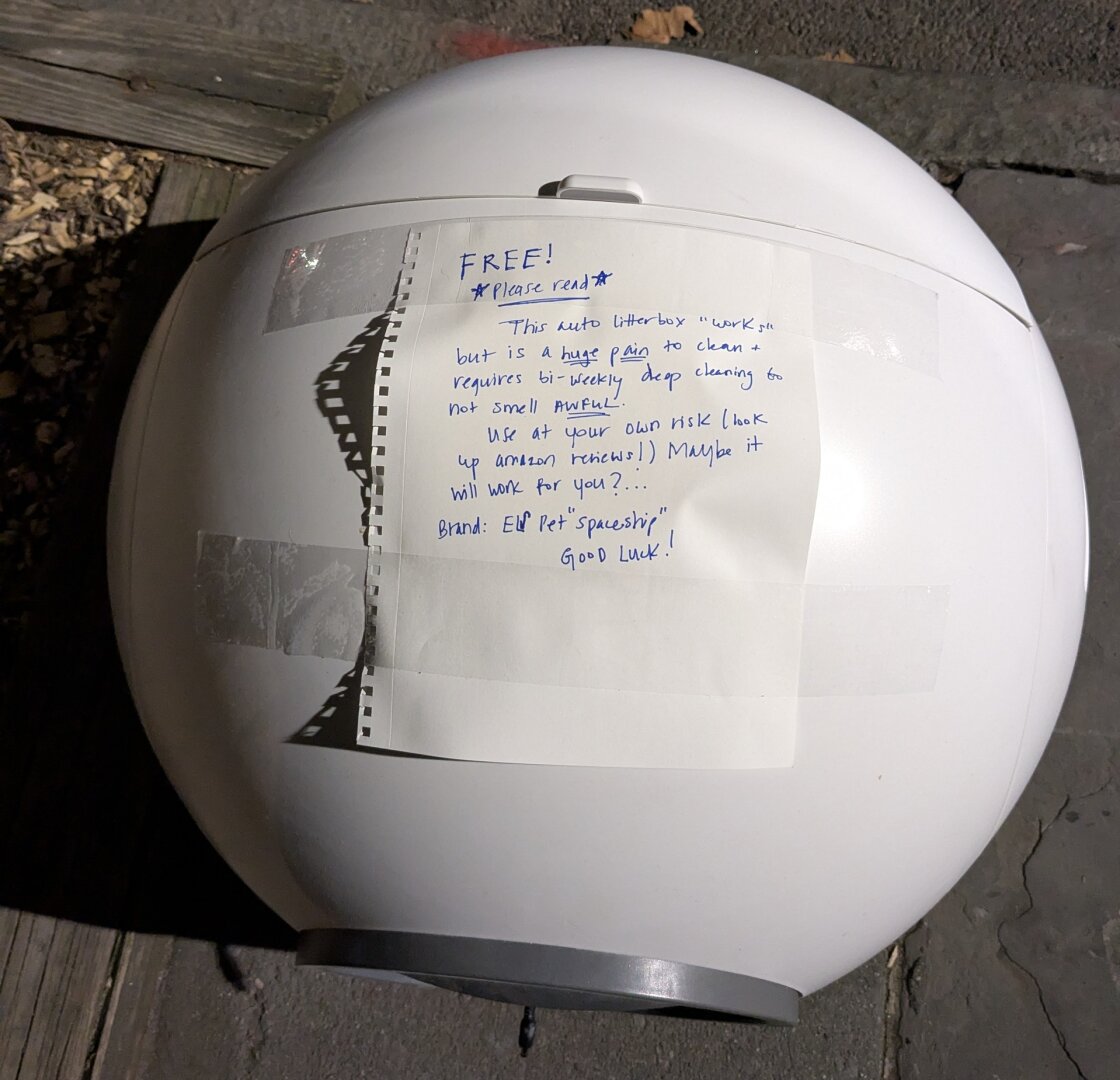 FREE!
★Please read★
This auto litterbox "works"
but is a huge pain to clean +
requires bi-weekly deep cleaning to
not smell AWFUL.
Use at your own risk (look
up amazon reviews!) Maybe it
will work for you?...
Brand: Els Pet "spaceship"
GOOD LUCK!